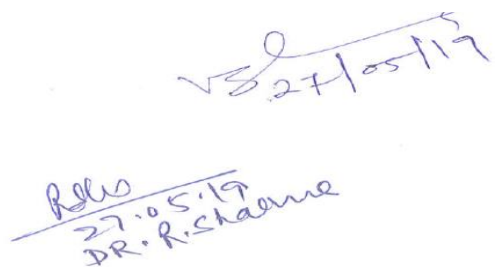 27/05/19
27.05.19
DR. R. Sharma